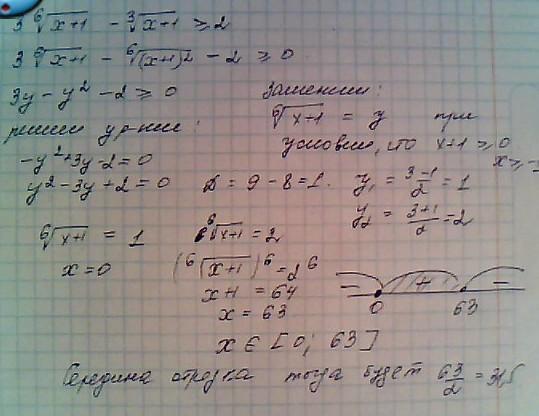 3 ⁶√x+1 - ³√x+1 ≥ 2
3 ⁶√x+1 - ⁶√(x+1)² - 2 ≥ 0
3y - y² - 2 ≥ 0
Заменим:
⁶√x+1 = y при
условии, что x+1 ≥ 0
x ≥ -1
решим ур-ние:
-y²+3y-2=0
y²-3y+2=0
D = 9-8=1.
y₁ = 3-1/2 = 1
y₂ = 3+1/2 = 2
⁶√x+1 = 1
x=0
⁶√x+1 = 2
(⁶√x+1)⁶ = 2⁶
x+1 = 64
x = 63
- + -
0 63
x ∈ [0; 63]
Середина отрезка тогда будет 63/2 = 31,5